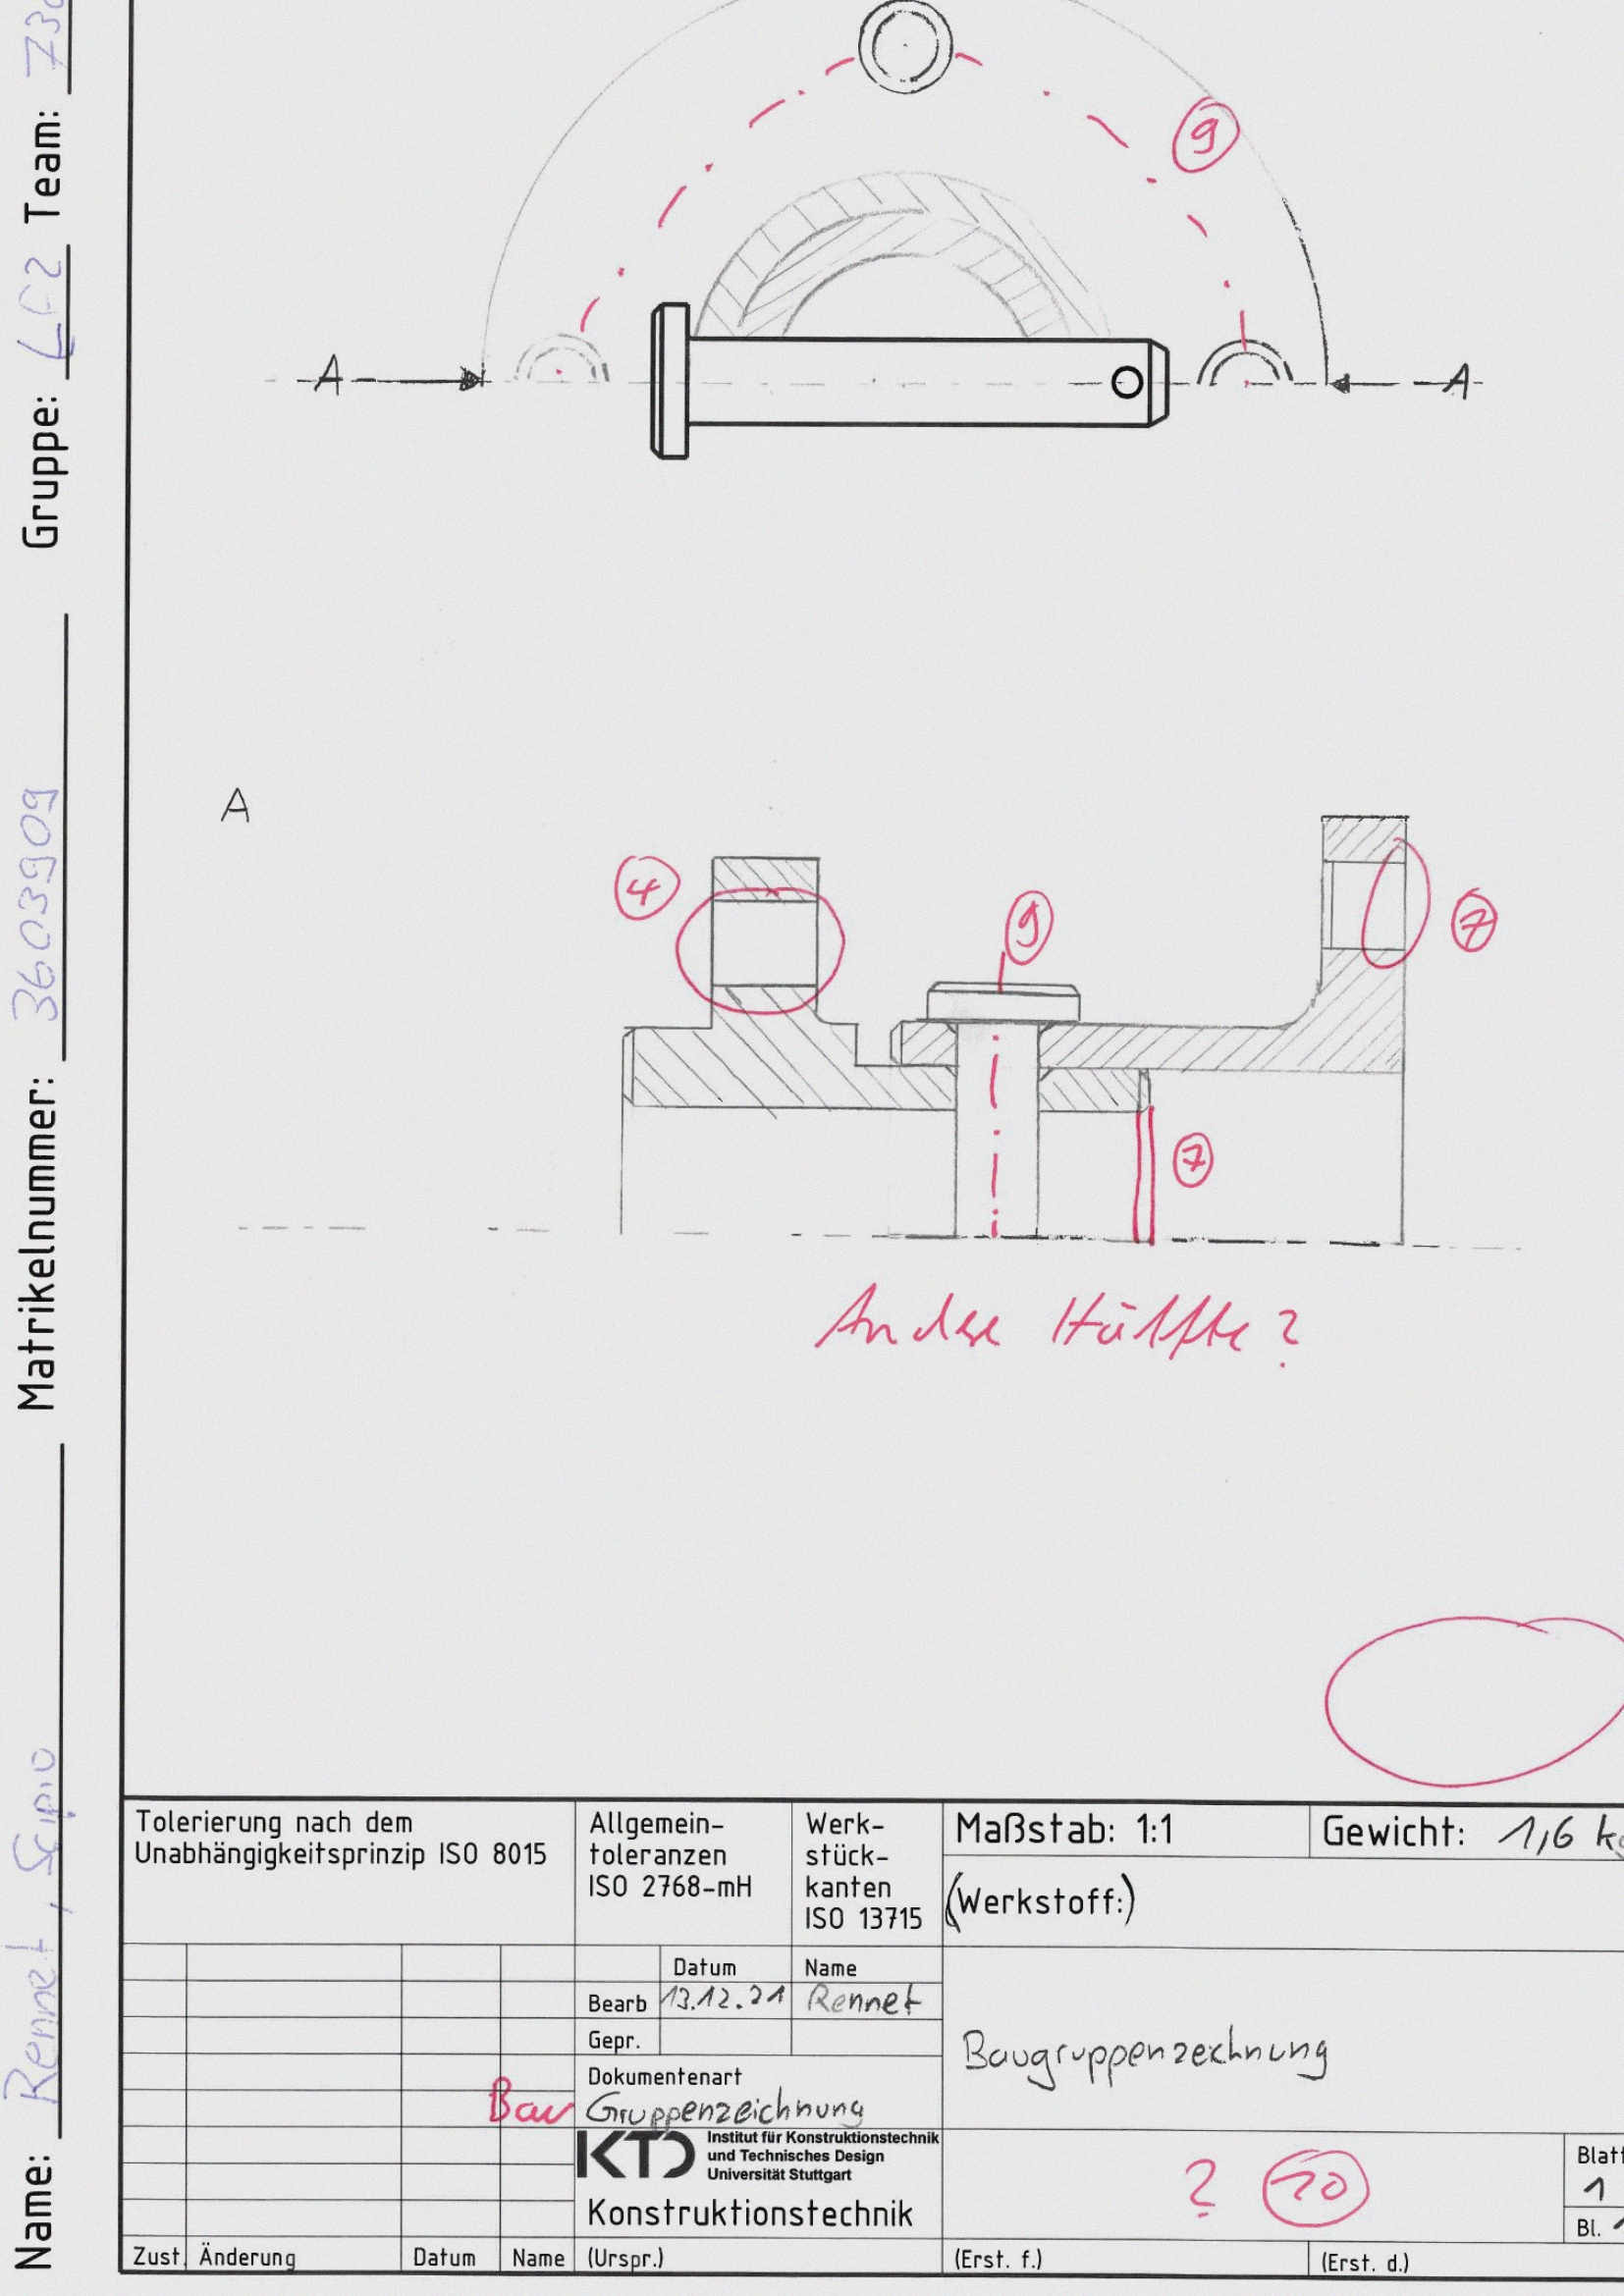 Name: Rennet, Scipio Matrikelnummer: 3603909 Gruppe: Team: 730
9
A A
A
4
9
7
7
Andere Hälfte?
Tolerierung nach dem
Unabhängigkeitsprinzip ISO 8015
Allgemein-
toleranzen
ISO 2768-mH
Werk-
stück-
kanten
ISO 13715
Maßstab: 1:1
Gewicht: 1,6 kg
(Werkstoff:)
Datum Name
Bearb 13.12.21 Rennet
Gepr.
Dokumentenart
Bau Gruppenzeichnung
Baugruppenzeichnung
KTD
Institut für Konstruktionstechnik
und Technisches Design
Universität Stuttgart
Konstruktionstechnik
? 10
Blatt
1
Bl. 1
Zust. Änderung Datum Name (Urspr.) (Erst. f.) (Erst. d.)